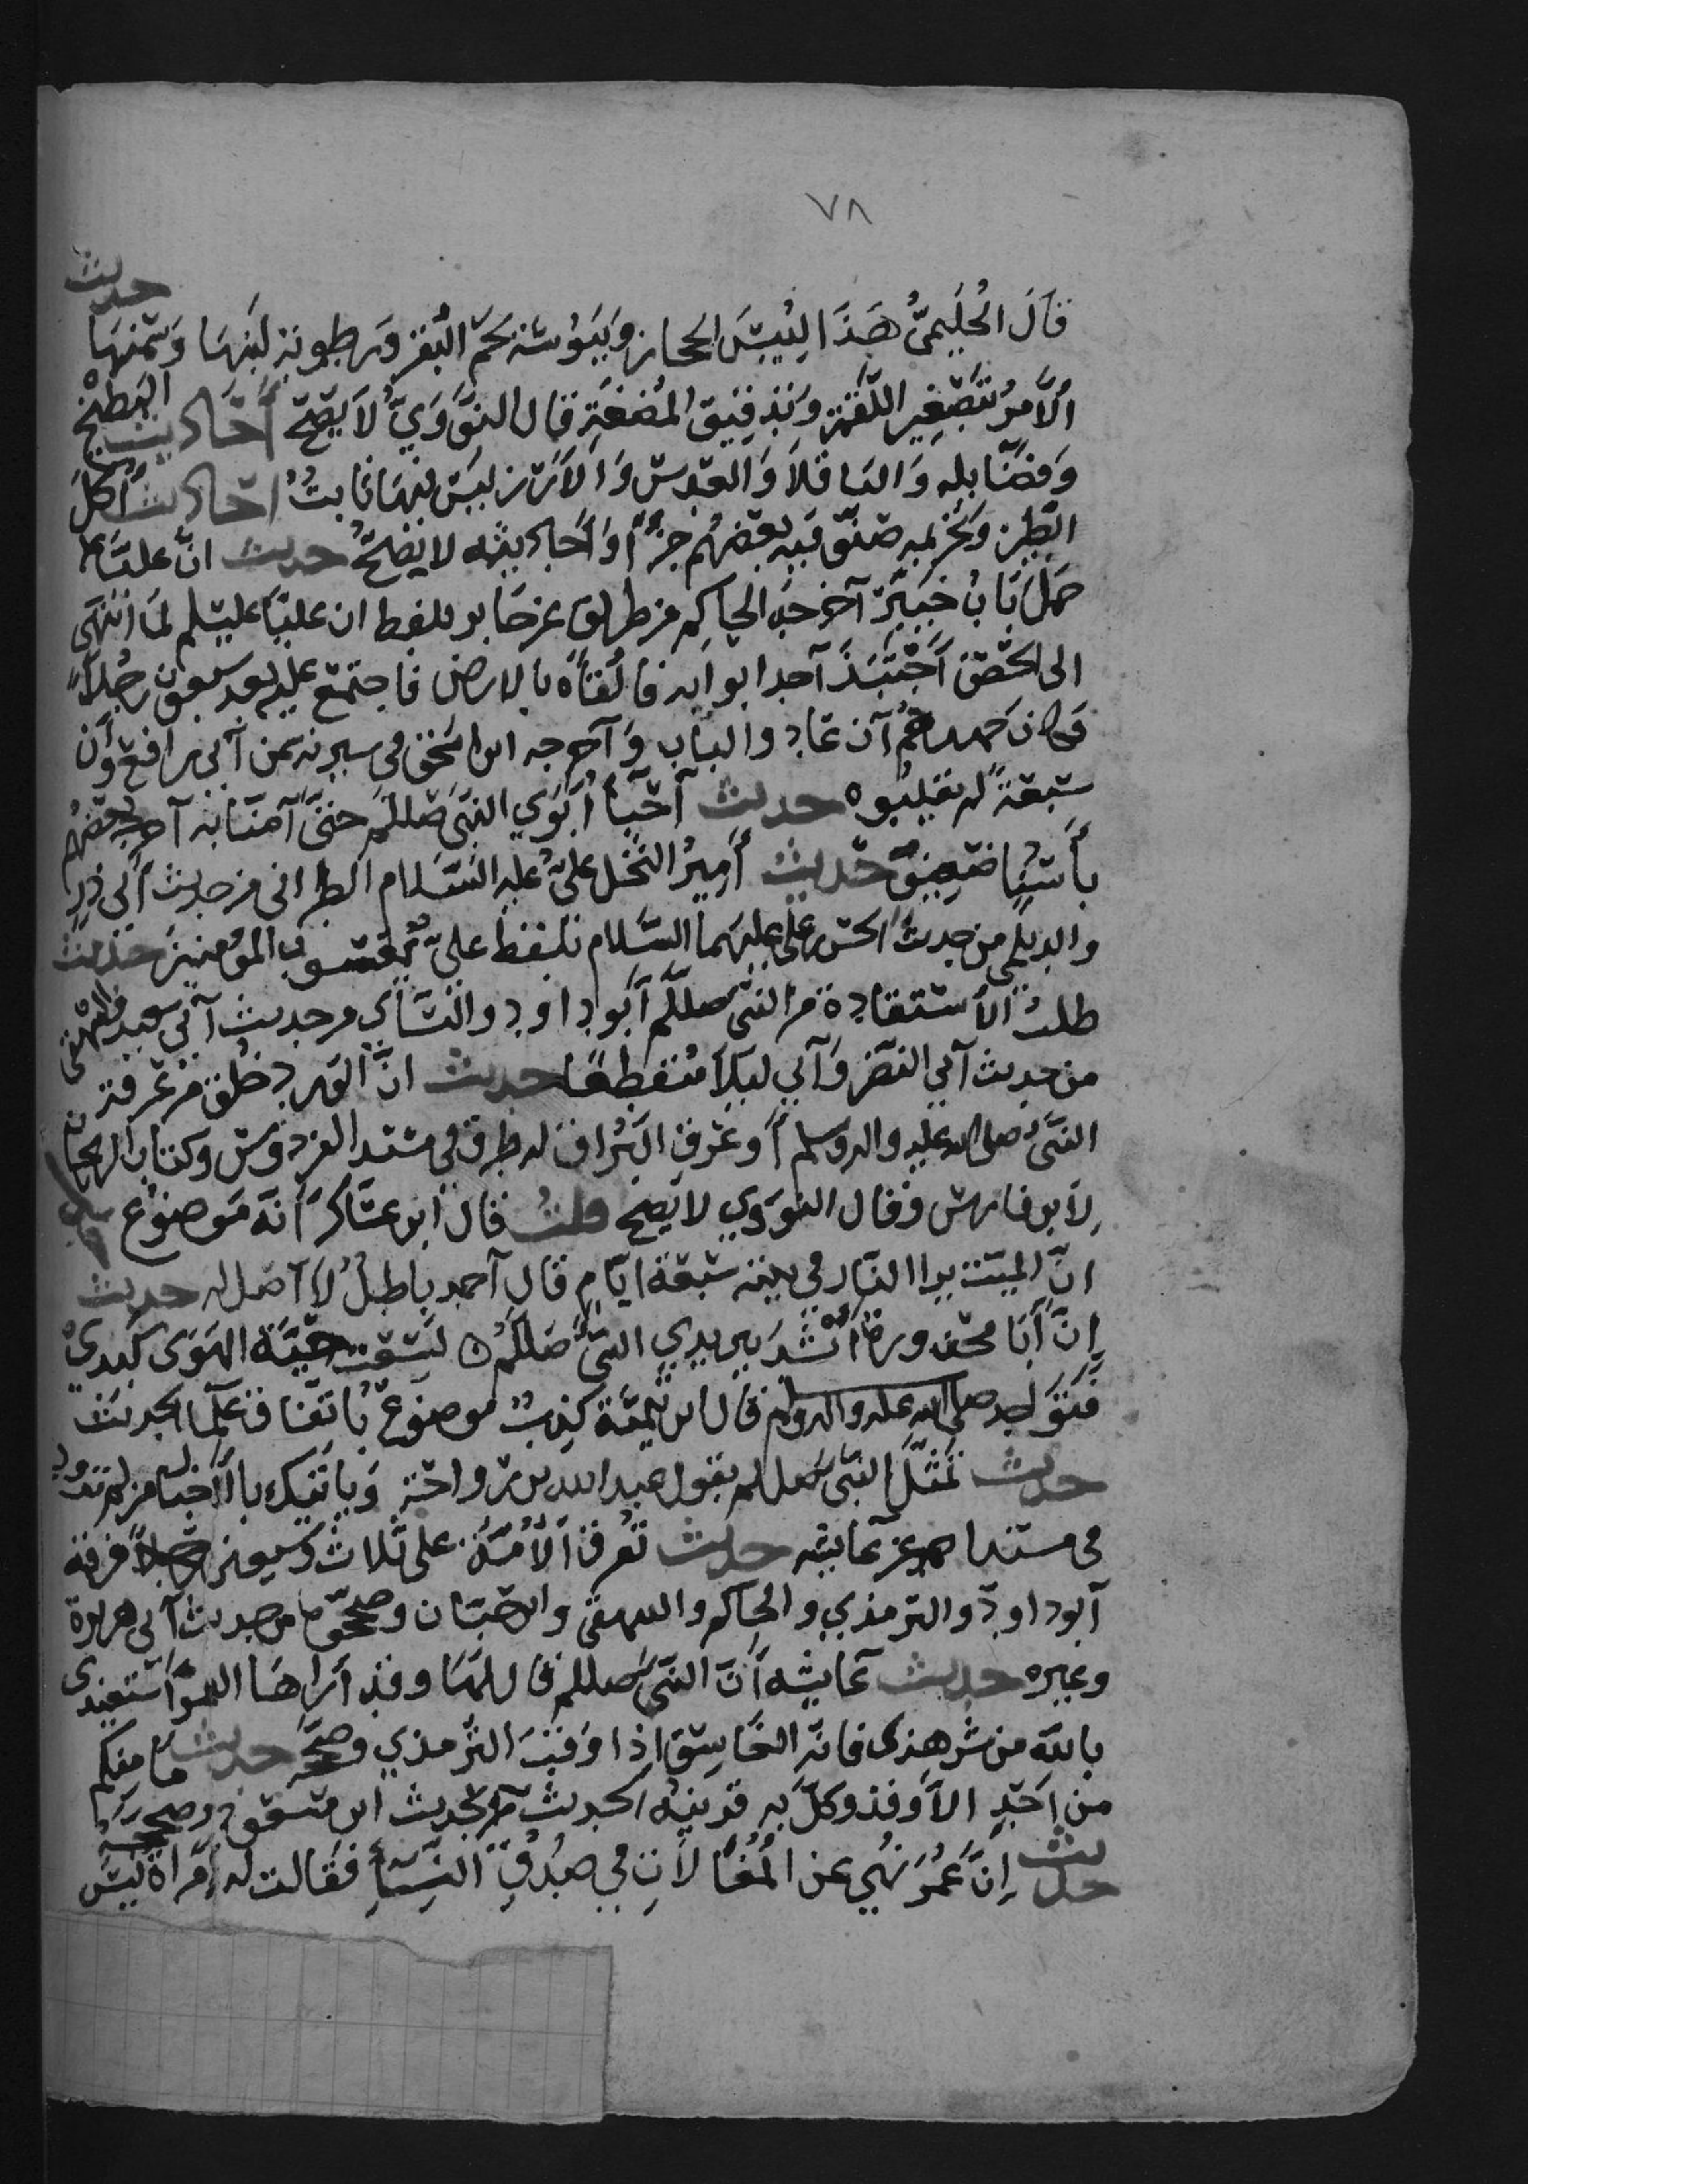 ٧٨
قَالَ الحُلَيميُّ هَذَا لِيُبْسِ الحجاز وَيُبُوسَة لحم البَقَر وَرطوبة لبنها وَسَمْنهَا حديث
الأَمرُ بتَصْغِير اللّقمَة وَتَدقيق المُضغَةِ قال النَّوَوِيُّ لاَ يَصحّ أَحَاديث البَطِّيخ
وَفضَايله وَالباقلاَ وَالعَدس وَالاَرز ليسَ فيهَا ثابتٌ احَاديث أكل
الطّين وَتحْريمه صَنّفَ فيه بعضهُم جزءًا وَأحَاديثه لا يصحّ حديث انَّ عليًّا
حمَلَ بَابُ خَيبَر آخرجَهُ الحاكم من طريق عن جَابر بلفظ ان عليًا عليسلم لمَا انتَهَى
الى الحصْن اَجْتبَذَ آحد ابوابه فالقاهُ بالارض فاجتمَع عليه بعد سبعون رجُلاً
فكان جهدهُم آن عَادوا الباب وَآخرجه ابن اسحَق في سيرته عن آبي رافع وَأن
سَبعَة لم يقلبُوه حديث آحيَا أَبَوَي النّبيّ صَللم حتىَّ آمنَا به آخرجه بعضهُم
بأسنادٍ ضعيف حَديث أَمِيرُ النَّحل عليٌّ عليه السَّلام الطبراني من حديث أَبي ذر
والديلمي من حديث الحسن بن علي عليهما السَّلام بلفظ عليّ يعسوب المؤمنين حديث
طلبُ الاستقادة من النّبي صللّم أبو داود والنَّسَأي من حديث آبي سعيد والبيهقى
من حديث آبي النضر وَآبي ليلاَ منقطعًا حديث انّ الورد خلق من عرقه
النَّبيّ صلى الله عليه واله وسلم أو عَرق البُراق له طرق في مسند الفردوس وكتاب الريحان
لابن فارس وقال النووي لا يصح قلت قال ابن عسَاكر أنه مَوضوُع
انّ الميّت يرا النّار في بيته سَبعَة ايّام قال آحمد باطلٌ لا آصل له حديث
إنَّ أبَا محذورة أنشَدَ بين يدي النَّبيّ صَللم ٥ لَسَعَت حيّة الهَوَى كبدي
فتوَاجد صلى الله عليه واله وسلم قال ابن تيميّة كذبٌ موضوعٌ باتّفاق علمآ الحديث
حديث تَمثّلَ النّبي صَللم بقول عبد الله بن رواحَة وَياتيك بالآخبار من لم تزود
في مسند احمد عن عايشه حديث تفرق الأُمَّةُ على ثلاث وسبعين فرقه
آبو داود والترمذي والحاكم والبيهقى وابن حبّان وصححوها من حديث آبي هريرة
وغيره حديث عايشه أنّ النّبيّ صللم قال لهَا وقد أراهَا القمر استعيذي
بالله من شر هذى فانه الغَاسِق اذا وَقبَ الترمذي وصحّحه حديث ما منكم
من احَدٍ الاّ وقد وكّل به قرينهُ الحديث من حديث ابن مسعود
حديث إنَّ عُمَرَ نُهي عن المُغالاَتِ في صُدُقِ النِّسَأ فقالت له إمرَاة ليسَ